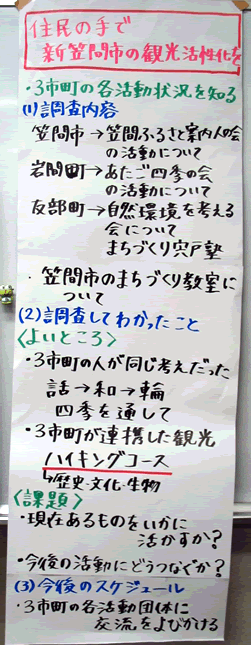 住民の手で
新笠間市の観光活性化を
・3市町の各活動状況を知る
(1)調査内容
笠間市→笠間ふるさと案内人の会
の活動について
岩間町→あたご四季の会
の活動について
友部町→自然環境を考える
会について
まちづくり宍戸塾
・笠間市のまちづくり教室に
ついて
(2)調査してわかったこと
〈よいところ〉
・3市町の人が同じ考えだった
話→和→輪
四季を通して
・3市町が連携した観光
ハイキングコース
↳歴史・文化・生物
〈課題〉
・現在あるものをいかに
活かすか?
・今後の活動にどうつなぐか?
(3)今後のスケジュール
・3市町の各活動団体に
交流をよびかける